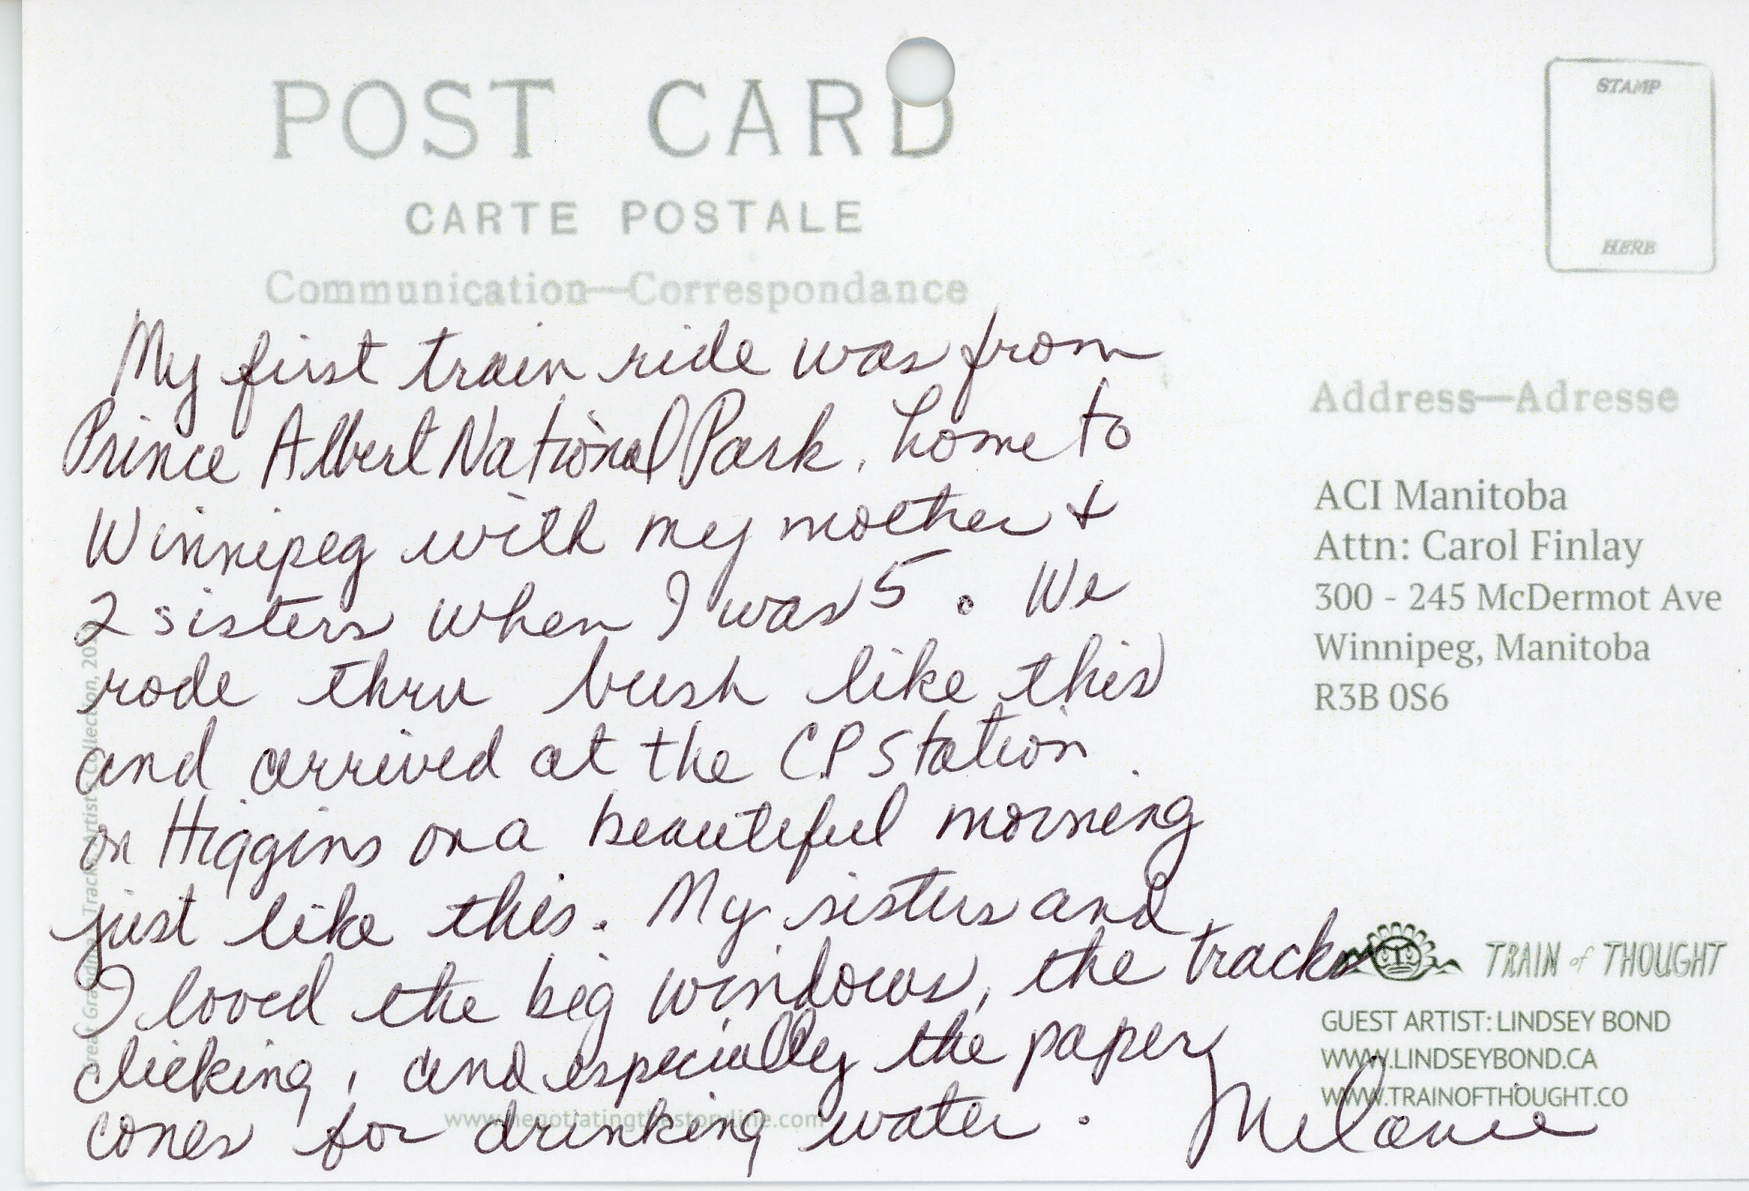 POST CARD
CARTE POSTALE
Communication—Correspondance
My first train ride was from
Prince Albert National Park, home to
Winnipeg with my mother &
2 sisters when I was 5. We
rode thru bush like this
and arrived at the CP Station
on Higgins on a beautiful morning
just like this. My sisters and
I loved the big windows, the tracks
clicking, and especially the paper
cones for drinking water.
Melanie
www.negotiatingthestoryline.com
STAMP
HERE
Address—Adresse
ACI Manitoba
Attn: Carol Finlay
300 - 245 McDermot Ave
Winnipeg, Manitoba
R3B 0S6
TRAIN of THOUGHT
GUEST ARTIST: LINDSEY BOND
WWW.LINDSEYBOND.CA
WWW.TRAINOFTHOUGHT.CO